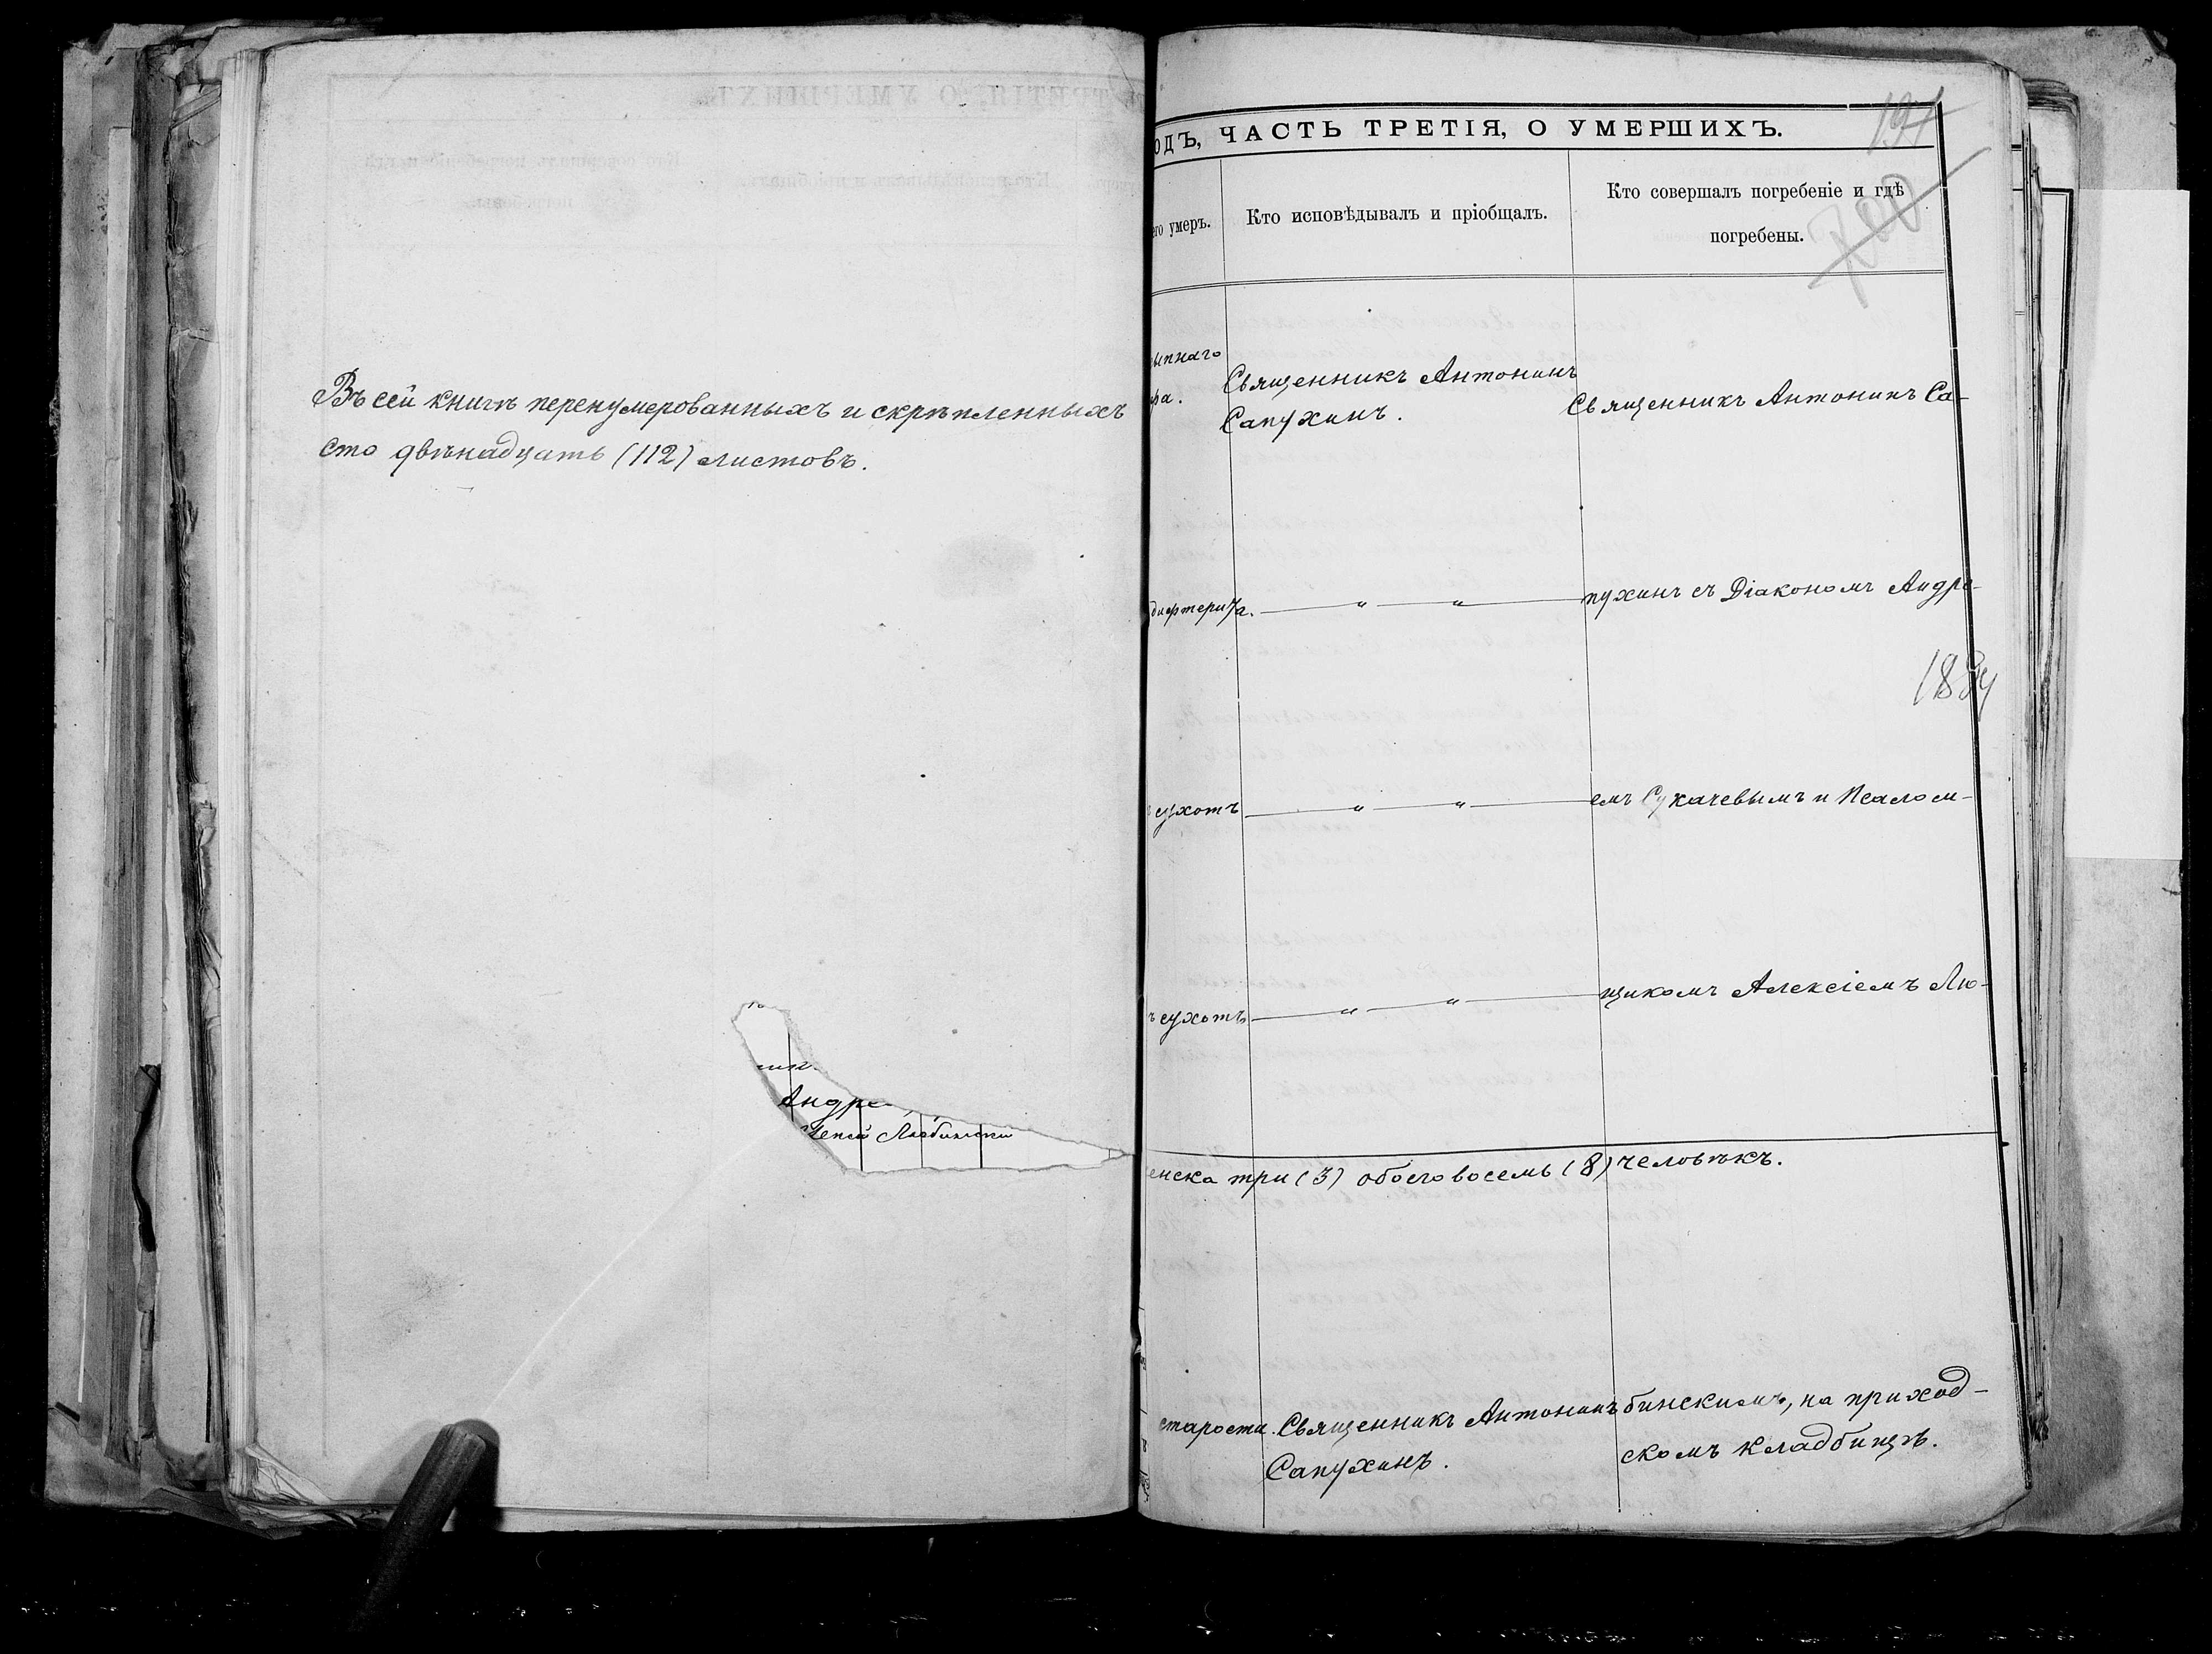 Въ сей книгѣ перенумерованныхъ и скрѣпленныхъ
сто двѣнадцать (112) листовъ.
Андре
Любински
ОДЪ, ЧАСТЬ ТРЕТІЯ, О УМЕРШИХЪ.
его умеръ.
Кто исповѣдывалъ и пріобщалъ.
Кто совершалъ погребеніе и гдѣ
погребены.
700
ыпнаго
фа.
Священникъ Антонинъ
Сапухинъ.
Священникъ Антонинъ Са-
дифтерита. — " — " —
пухинъ съ Діакономъ Андре-
сухотъ — " — " —
емъ Сукачевымъ и Псалом-
ъ сухотъ — " — " —
щикомъ Алексіемъ Лю-
енска три (3) обоего восемь (8) человѣкъ.
старости.
Священникъ Антонинъ
Сапухинъ.
бинскимъ, на приход-
скомъ кладбищѣ.